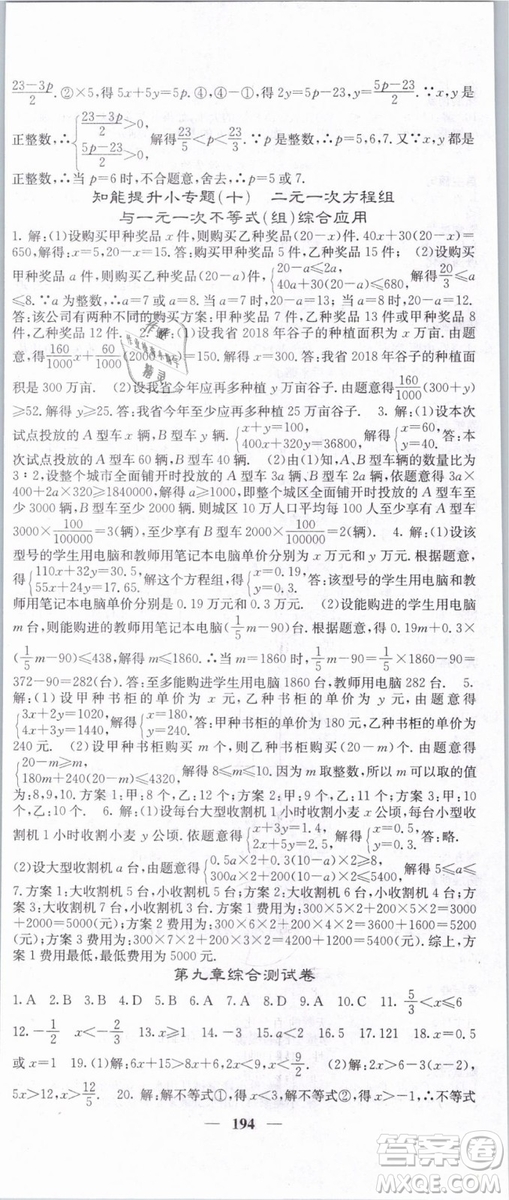 23−3p/2. ②×5,得 5x+5y=5p.④,④−①,得 2y=5p−23,y=5p−23/2. ∵x,y 是
正整数,∴{23−3p/2>0, 5p−23/2>0, 解得23/5<p<23/3. ∵p 是整数,∴p=5,6,7. 又∵x,y 是
正整数,∴p=6 时,不合题意,舍去,∴p=5 或 7.
知能提升小专题(十) 二元一次方程组
与一元一次不等式(组)综合应用
1. 解:(1)设购买甲种奖品 x 件,则购买乙种奖品(20−x)件. 40x+30(20−x)
=650,解得:x=5,20−x=15. 答:购买甲种奖品 5 件,乙种奖品 15 件; (2)设购买
甲种奖品 a 件,则购买乙种奖品(20−a)件,{20−a≤2a, 40a+30(20−a)≤680, 解得20/3≤a
≤8. ∵a 为整数,∴a=7 或 a=8. 当 a=7 时,20−a=13;当 a=8 时,20−a=12.
答:该公司有两种不同的购买方案:甲种奖品 7 件,乙种奖品 13 件或甲种奖品 8
件,乙种奖品 12 件. 2. 解:(1)设我省 2018 年谷子的种植面积为 x 万亩. 由题
意,得160/1000x+60/1000(2000−x)=150,解得 x=300. 答:我省 2018 年谷子的种植面
积是 300 万亩. (2)设我省今年应再多种植 y 万亩谷子. 由题意,得160/1000(300+y)
≥52. 解得 y≥25. 答:我省今年至少应再多种植 25 万亩谷子. 3. 解:(1)设本次
试点投放的 A 型车 x 辆,B 型车 y 辆,根据题意,得{x+y=100, 400x+320y=36800, 解得{x=60, y=40. 答:本
次试点投放的 A 型车 60 辆,B 型车 40 辆; (2)由(1)知 A、B 型车辆的数量比为
3∶2,设整个城市全面铺开时投放的 A 型车 3a 辆,B 型车 2a 辆,依题意得 3a
×400+2a×320≥1840000,解得 a≥1000,即整个城区全面铺开时投放的 A 型车
至少 3000 辆,B 型车至少 2000 辆,则城区 10 万人口平均每 100 人至少享有 A 型车
3000×100/100000=3(辆),至少享有 B 型车 2000×100/100000=2(辆). 4. 解:(1)设该
型号的学生用电脑和教师用笔记本电脑单价分别为 x 万元和 y 万元. 根据题意,
得:{110x+32y=30.5, 55x+24y=17.65. 解这个方程组,得{x=0.19, y=0.3. 答:该型号的学生用电脑和教
师用笔记本电脑单价分别是 0.19 万元和 0.3 万元. (2)设能购进的学生用电脑
m 台,则能购进的教师用笔记本电脑(1/5m−90)台. 根据题意,得 0.19m+0.3×
(1/5m−90)≤438,解得:m≤1860. 当 m=1860 时,1/5m−90=1/5×1860−90=
372−90=282. 答:至多能购进学生用电脑 1860 台,教师用电脑 282 台. 5.
解:(1)设甲种书柜的单价为 x 元,乙种书柜的单价为 y 元,由题意得
{3x+2y=1020, 4x+3y=1440, 解得{x=180, y=240. 答:甲种书柜的单价为 180 元,乙种书柜的单价为
240 元. (2)设甲种书柜购买 m 个,则乙种书柜购买(20−m)个,由题意得
{20−m≥m, 180m+240(20−m)≤4320, 解得 8≤m≤10. 因为 m 取整数,所以可购买的方案有:
方案 1:甲:8 个,乙:12 个;方案 2:甲:9 个,乙:11 个;方案 3:甲:10 个,乙:
10 个. 6. 解:(1)设每台大型收割机 1 小时收割小麦 x 公顷,每台小型收
割机 1 小时收割小麦 y 公顷. 依题意得{x+3y=1.4, 2x+5y=2.5, 解得{x=0.5, y=0.3. 答:略.
(2)设大型收割机 a 台,依题意得{0.5a×2+0.3(10−a)×2≥8, 300×2×a+200×2×(10−a)≤5400. 解得 5≤a≤
7. 方案 1:大收割机 5 台,小收割机 5 台,方案 2:大收割机 6 台,小收割机 4 台,
方案 3:大收割机 7 台,小收割机 3 台. 方案 1 费用为:300×5×2+200×5×2=3000
+2000=5000(元);方案 2 费用为:300×6×2+200×4×2=3600+1600=
5200(元);方案 3 费用为:300×7×2+200×3×2=4200+1200=5400(元). 综上,方
案 1 费用最低,最低费用为 5000 元.
第九章综合测试卷
1. A 2. D 3. A 4. D 5. B 6. A 7. B 8. A 9. D 10. C 11. 5/3<x≤6
12. −2/3 x<−2/3 13. x≥1 14. a<2 15. a≤2 16. 2 17. 121 18. x=0
或 x=1 19. (1)解:6x+15>8x+6,6x−8x>6−15,−2x>−9,x<9/2. (2)解:2x>6−3(x−2),
5x>12,x>12/5. 20. 解:解不等式①,得 x>−1,解不等式②,得 x≤1,∴不等式
194
答案圈